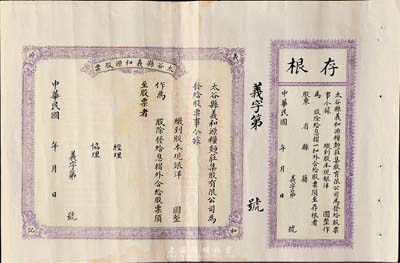 存根
太谷縣義和源糧麵莊集股有限公司為發給股票
事今據 繳到股本現銀洋 圓整作
為 股除給息摺一和外合給股票須至存根者
股東 省 縣 籍
義字第 號
中華民國 年 月 日
義字第 號
太谷縣義和源股票
義
和
記
太谷縣義和源糧麵莊集股有限公司為
發給股票事今據
繳到股本現銀洋 圓整
作為 股除發給息摺外合給股票須
至股票者
經理
協理
義字第 號
中華民國 年 月 日